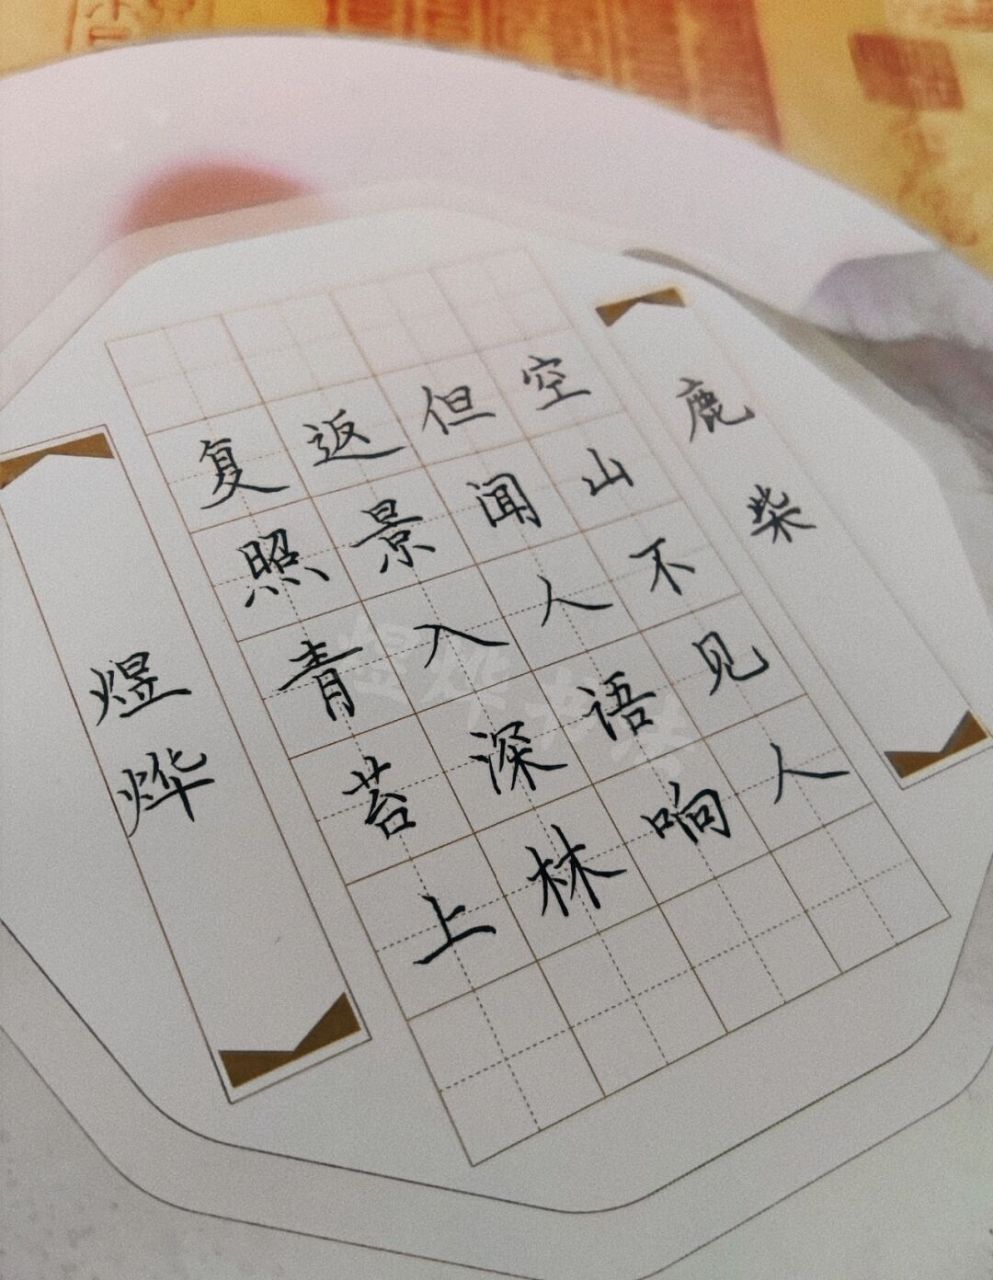 鹿柴
空山不见人
但闻人语响
返景入深林
复照青苔上
煜烨
煜烨书法